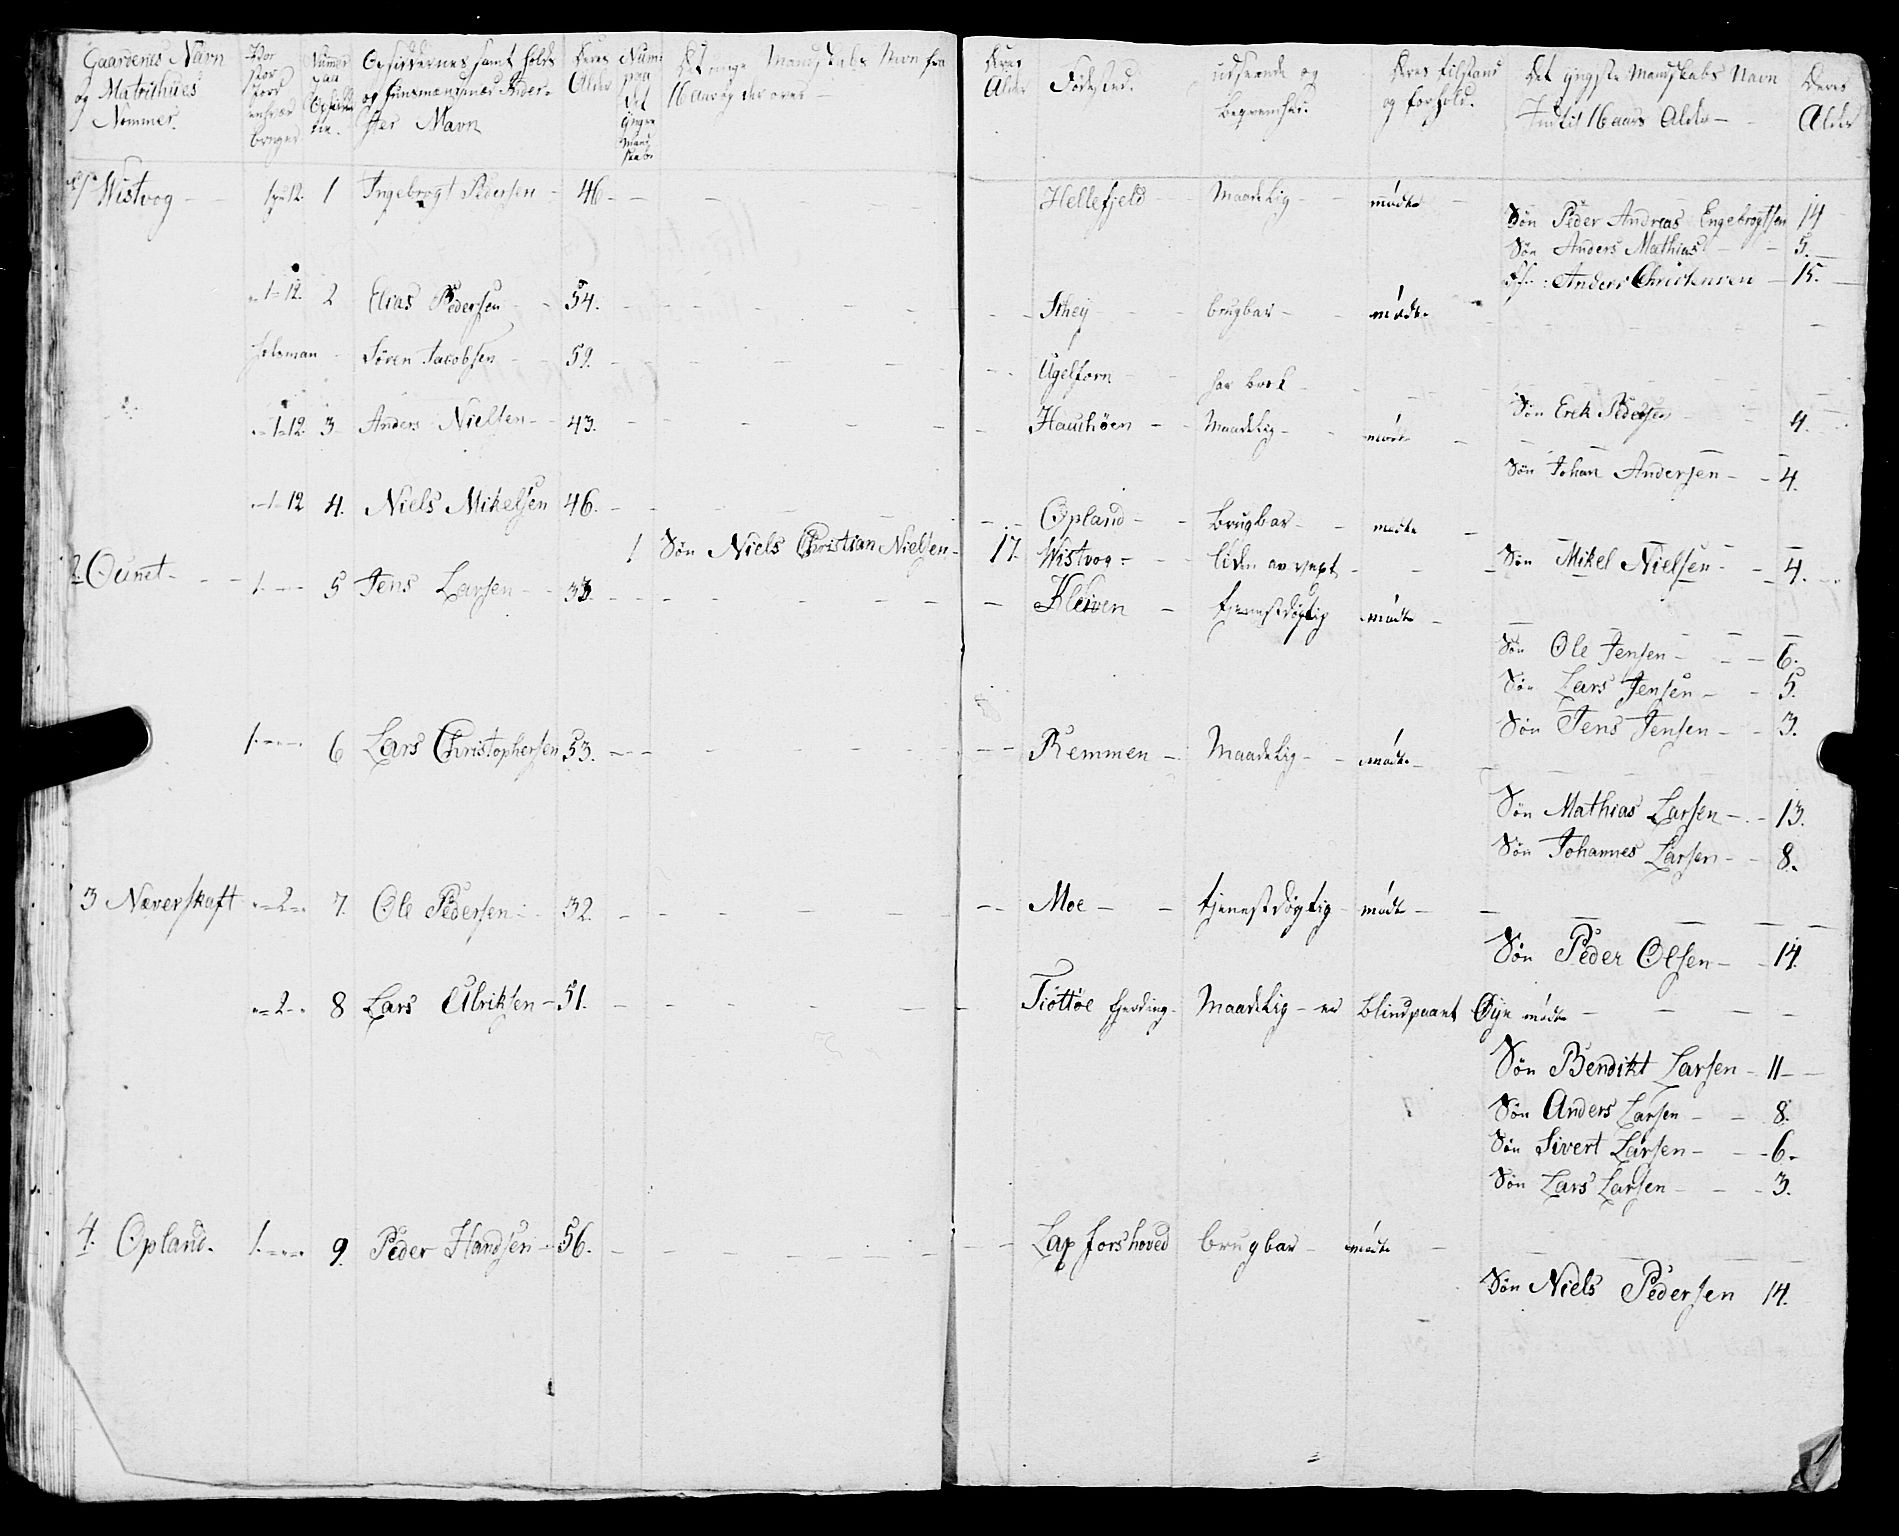 Gaardenes Navn og Matrikuls Nommer.
Hvor stor Jord enhver bruger
Numer paa Opsidderne.
Opsiddernes samt holds og huusmændenes Under Navn
Deres Alder
Num paa det yngre Mandskab.
Det unge Mandskabs Navn fra 16 Aar og der over
Deres Alder
Fødested.
udseende og beqvemhed.
Deres tilstand og forhold.
Det yngste Mandskabs Navn Indtil 16 aars Alder
Deres Alder
1 Wistvog - 1 pu 12. 1 Ingebrogt Pedersen - 46 - Hellefjeld - Maadelig - mødte -
Søn Peder Andreas Engebrogtsen 14
Søn Anders Mathias - 5.
Anders Christensen - 15.
1-12. 2 Elias Pedersen - 54. - brugbar - mødte
Søren Jacobsen - 59. - Ugelforn
-1-12. 3 Anders Nielsen - 43. - Hauuhöen - Maadelig - mødte -
Søn Erek Pedersen 4.
Søn Johan Andersen - 4.
-1-12 4. Niels Mikelsen 46. - Opland - Brugbar - mødte -
1 Søn Niels Christian Nielsen - 17. Wistvog - liden av vext -
Søn Mikel Nielsen - 4.
2 Ounet - 1. 5 Jens Larsen - 33. - Kleiven - tjenestdögtig mødte -
Søn Ole Jensen - 6.
Søn Lars Jensen - 5.
Søn Jens Jensen - 3.
1. 6 Lars Christophersen 53. - Remmen - Maadelig - mødte -
Søn Mathias Larsen - 13.
Søn Johannes Larsen - 8.
3 Næverskaft -2- 7. Ole Pedersen - 32. - Moe - tjenestdögtig - mødte -
Søn Peder Olsen - 14.
-2- 8 Lars Ulriksen - 51. - Tiöttöe fjerding - Maadelig - er blind paa et Öye mødte -
Søn Bendikt Larsen - 11 -
Søn Anders Larsen - 8.
Søn Sivert Larsen - 6 -
Søn Lars Larsen - 3.
4. Opland. 1. 9. Peder Handsen - 56. - Lap forshoved brugbar - mødte -
Søn Niels Pedersen 14.